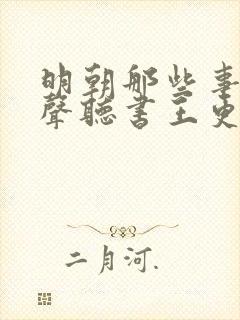 明朝那些事
聲聽書王更
二月河.